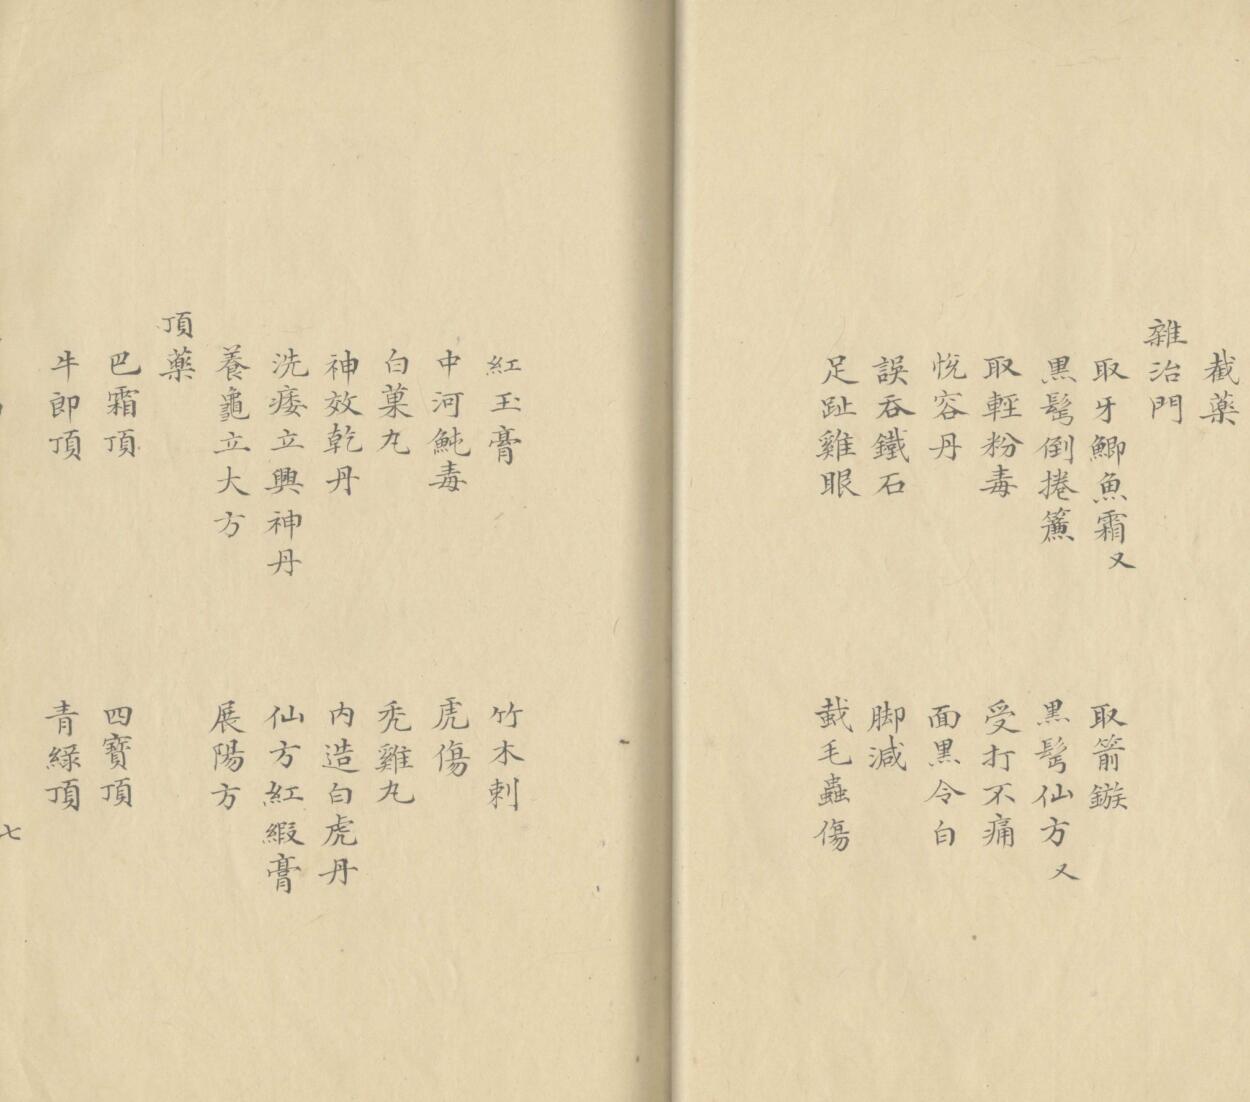 截藥
雜治門
取牙鯽魚霜又
取箭鏃
黑鬢倒捲簾
黑鬢仙方又
取輕粉毒
受打不痛
悅容丹
面黑令白
誤吞鐵石
脚減
足趾雞眼
毛蟲傷
紅玉膏
竹木刺
中河魨毒
虎傷
白菓丸
禿雞丸
神效乾丹
內造白虎丹
洗痿立興神丹
仙方紅緞膏
養龜立大方
展陽方
頂藥
巴霜頂
四寶頂
牛郎頂
青綠頂
七